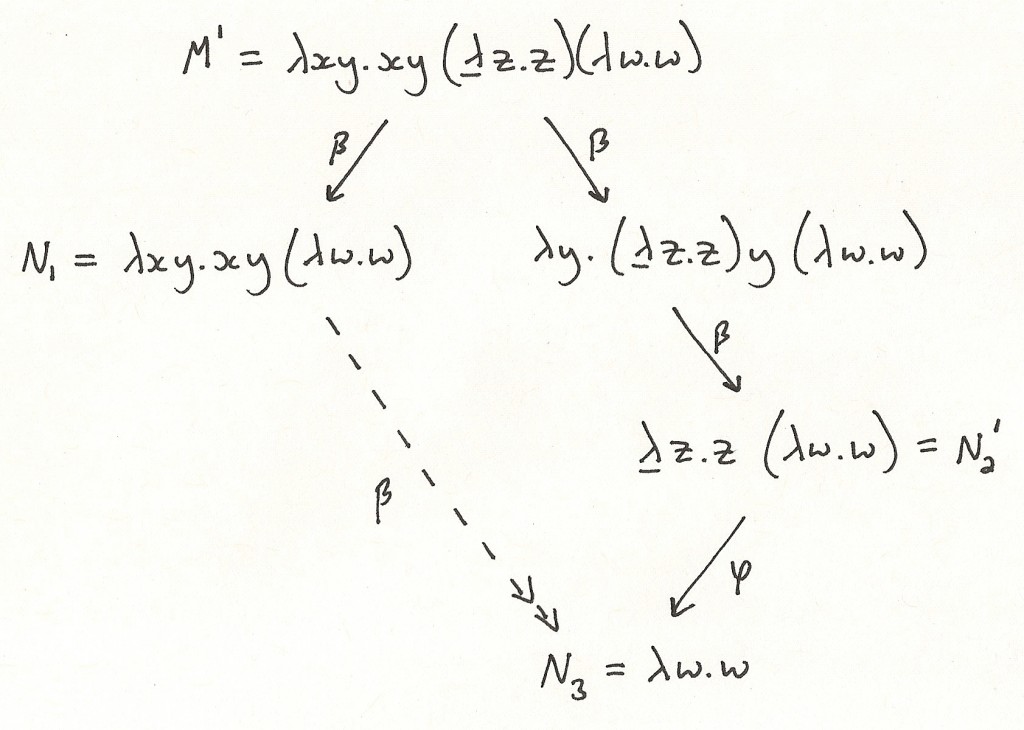 M' = λxy.xy (λ̲z.z)(λw.w)
β β
N₁ = λxy.xy (λw.w) λy. (λ̲z.z) y (λw.w)
β
λ̲z.z (λw.w) = N₂'
β
φ
N₃ = λw.w